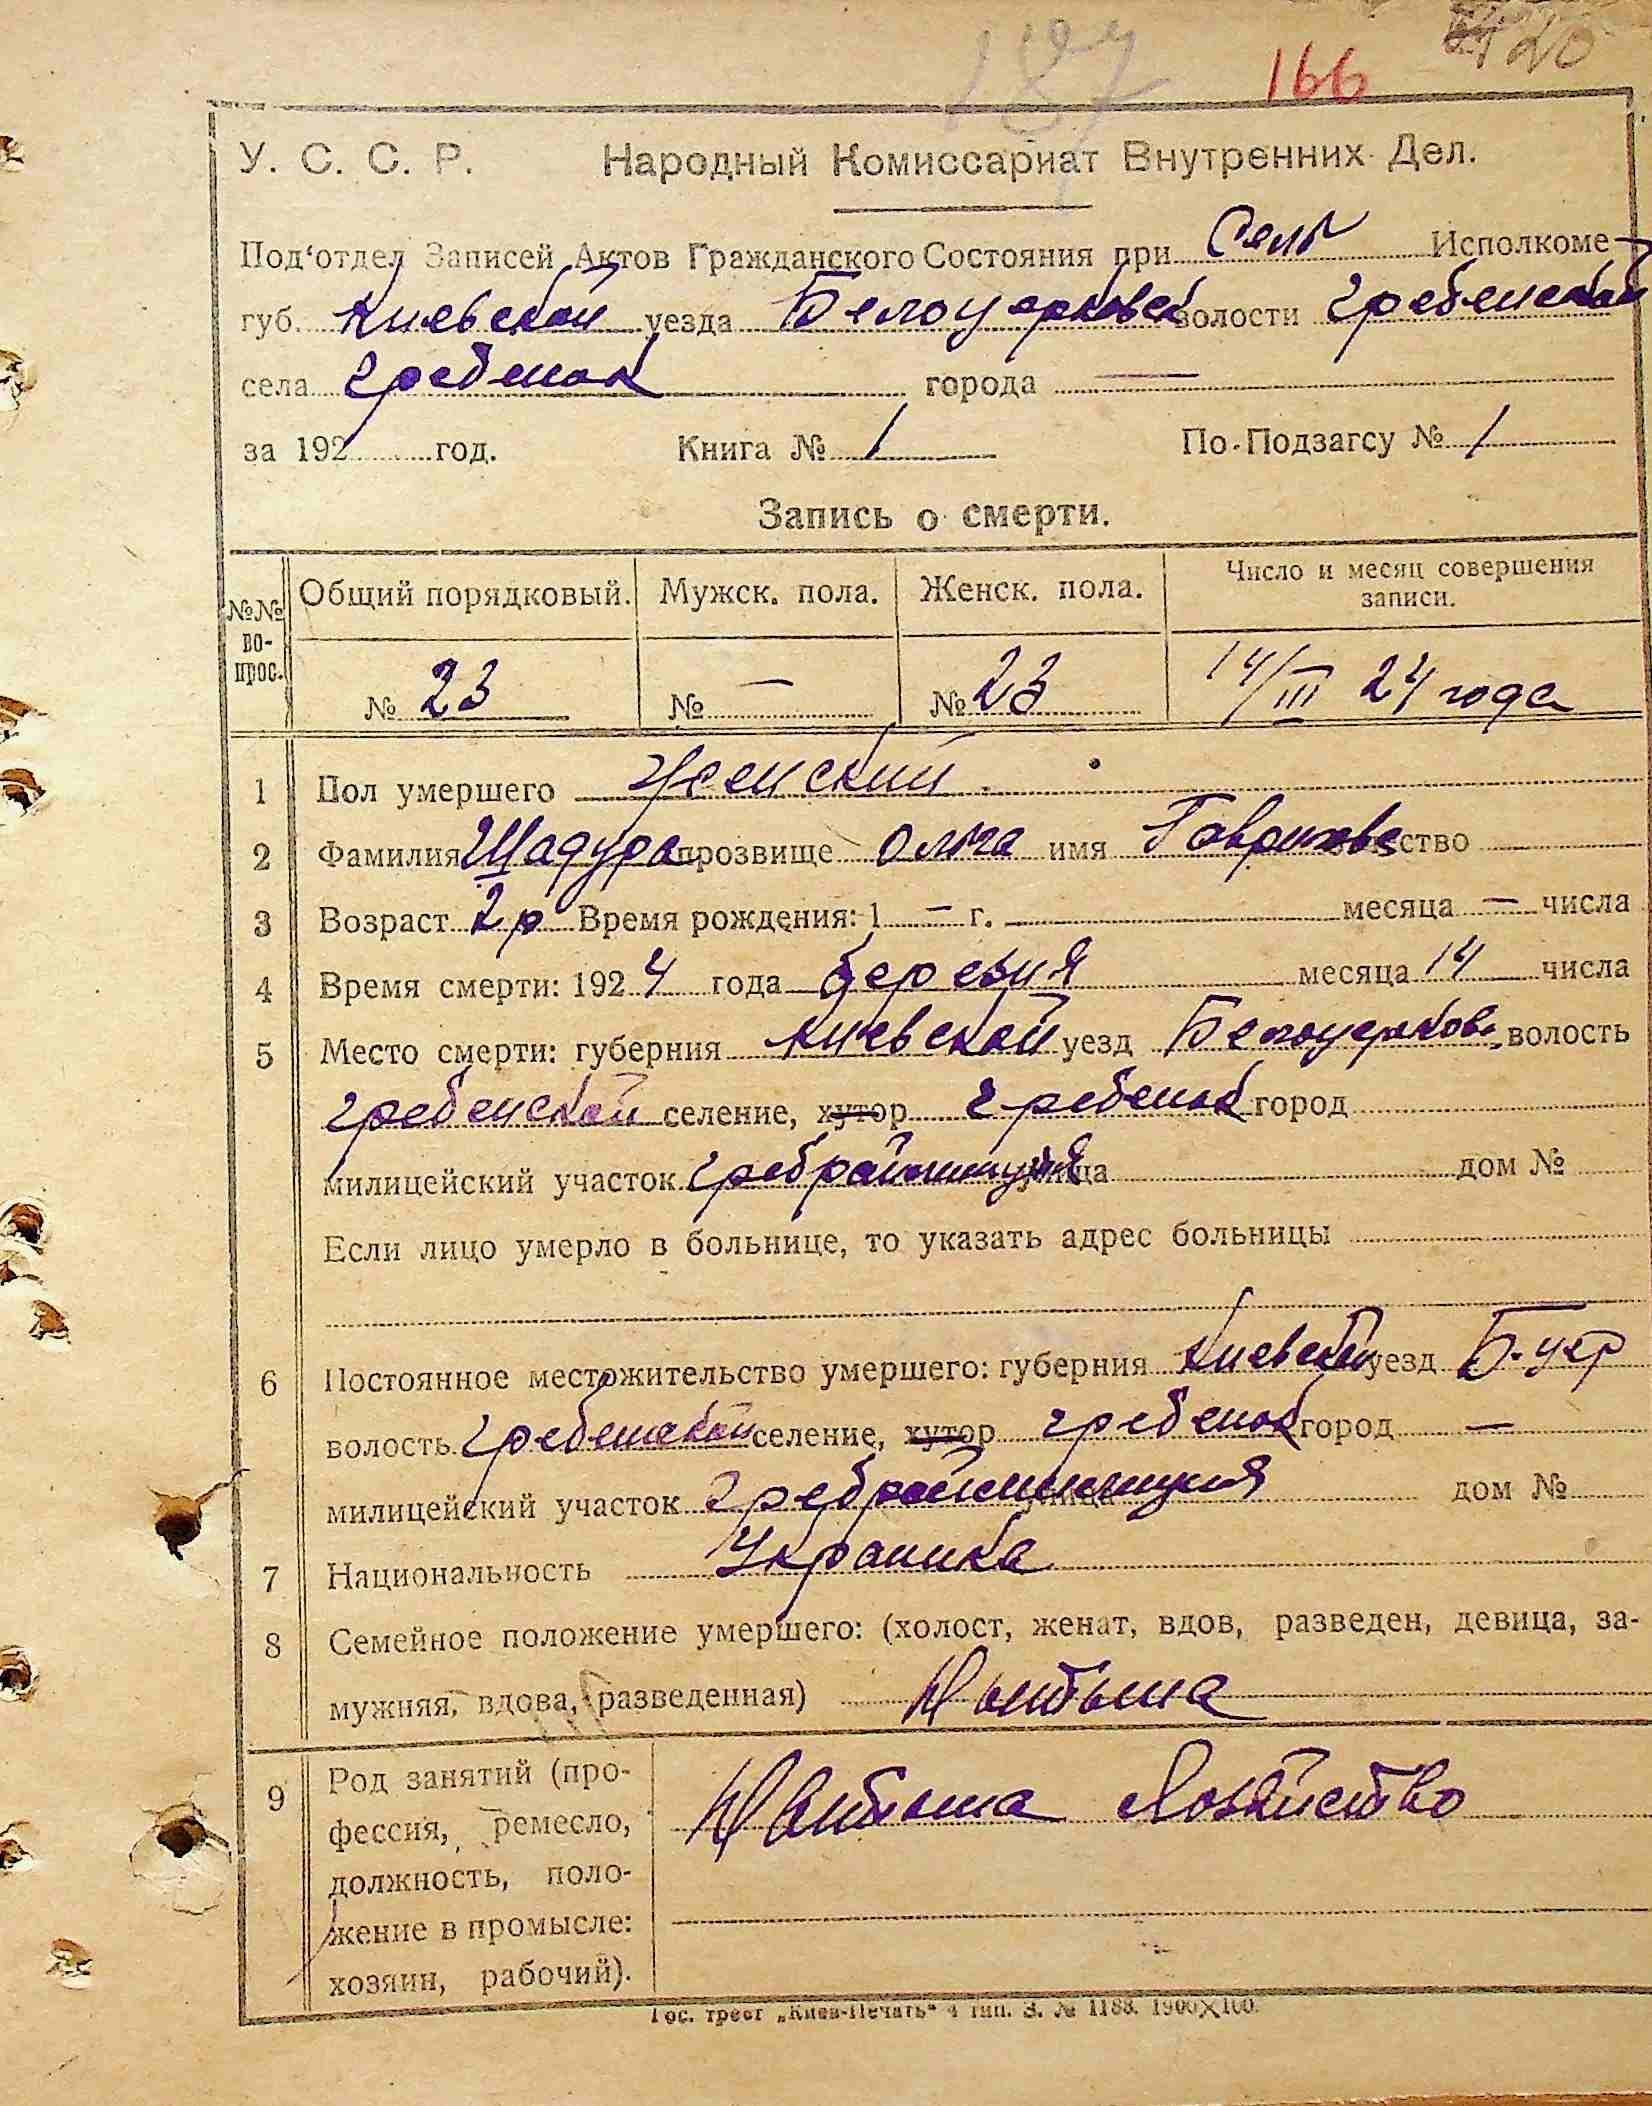 187 166 120
У. С. С. Р. Народный Комиссариат Внутренних Дел.
Под'отдел Записей Актов Гражданского Состояния при Сель Исполкоме
губ. Киевской уезда Белоцерковск волости Гребенской
села Гребенок города —
за 192 год. Книга № 1 По-Подзагсу № 1
Запись о смерти.
№№ вопрос. Общий порядковый. Мужск. пола. Женск. пола. Число и месяц совершения записи.
№ 23 № — № 23 14/III 24 года
1 Пол умершего Женский.
2 Фамилия Шадура прозвище Ольга имя ство
3 Возраст 2 р Время рождения: 1 — г. месяца — числа
4 Время смерти: 1924 года березня месяца 14 числа
5 Место смерти: губерния Киевской уезд Белоцерковс. волость
Гребенской селение, хутор Гребенок город
милицейский участок улица дом №
Если лицо умерло в больнице, то указать адрес больницы
6 Постоянное местожительство умершего: губерния Киевской уезд Б-цер
волость Гребенской селение, хутор Гребенок город —
милицейский участок улица дом №
7 Национальность Украинка
8 Семейное положение умершего: (холост, женат, вдов, разведен, девица, за-
мужняя, вдова, разведенная)
9 Род занятий (про-
фессия, ремесло,
должность, поло-
жение в промысле:
хозяин, рабочий).
Хозяйство
Гос. трест „Киев-Печать" 4 тип. З. № 1188. 1900X100.